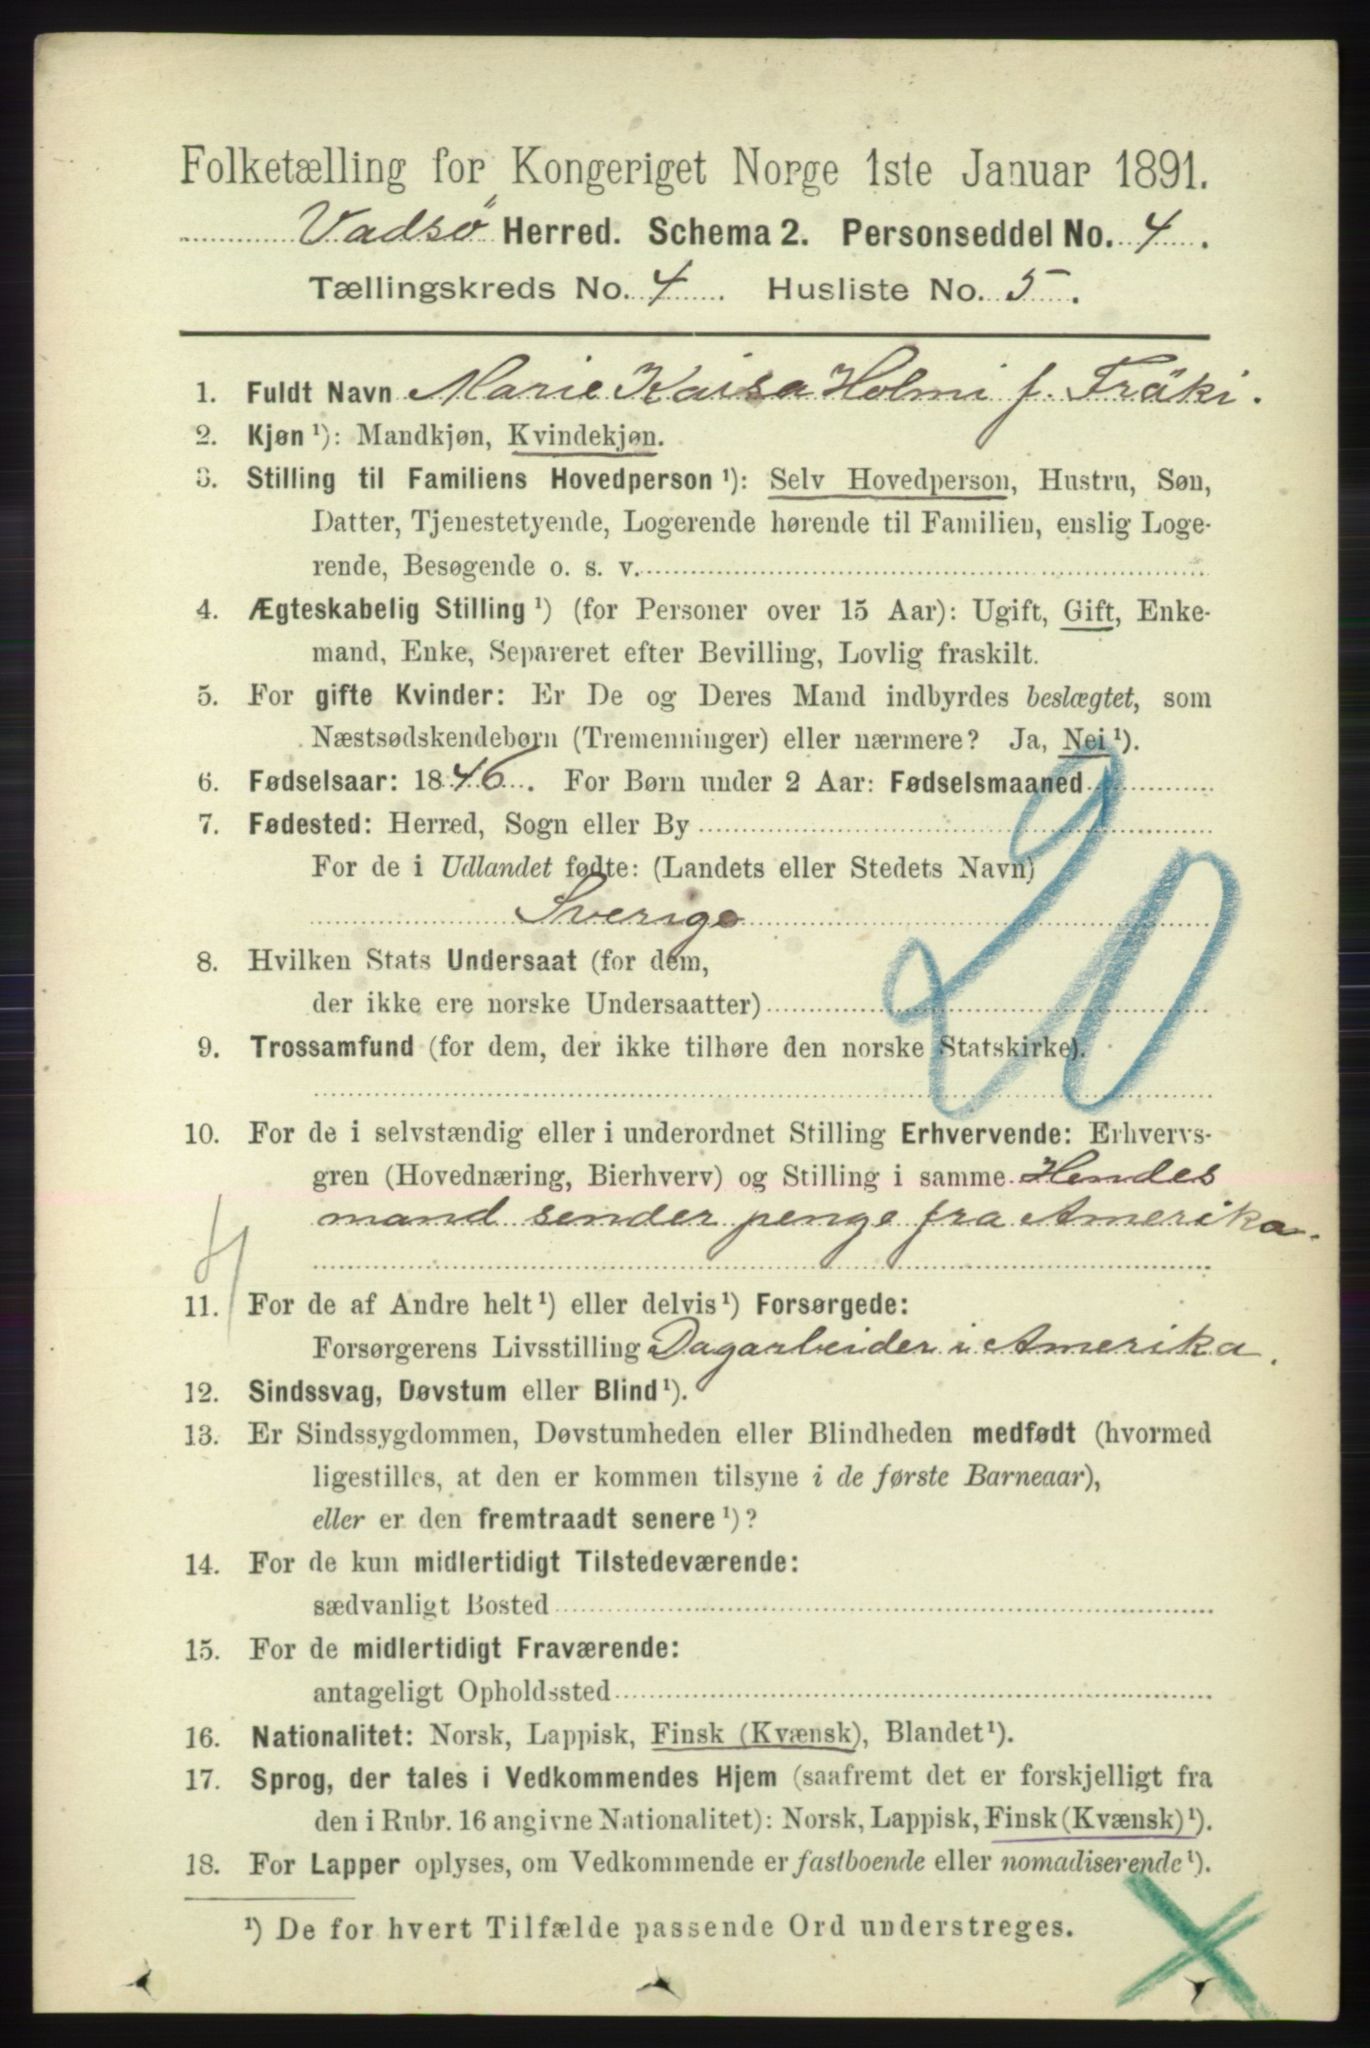 Folketælling for Kongeriget Norge 1ste Januar 1891.
Vadsö Herred. Schema 2. Personseddel No. 4.
Tællingskreds No. 4. Husliste No. 5.
1. Fuldt Navn Marie Kaisa Holmi f. Fräki.
2. Kjøn ¹): Mandkjøn, Kvindekjøn.
3. Stilling til Familiens Hovedperson ¹): Selv Hovedperson, Hustru, Søn,
Datter, Tjenestetyende, Logerende hørende til Familien, enslig Loge-
rende, Besøgende o. s. v.
4. Ægteskabelig Stilling ¹) (for Personer over 15 Aar): Ugift, Gift, Enke-
mand, Enke, Separeret efter Bevilling, Lovlig fraskilt.
5. For gifte Kvinder: Er De og Deres Mand indbyrdes beslægtet, som
Næstsødskendebørn (Tremenninger) eller nærmere? Ja, Nei ¹).
6. Fødselsaar: 1846. For Børn under 2 Aar: Fødselsmaaned
7. Fødested: Herred, Sogn eller By
For de i Udlandet fødte: (Landets eller Stedets Navn)
Sverige
20
8. Hvilken Stats Undersaat (for dem,
der ikke ere norske Undersaatter)
9. Trossamfund (for dem, der ikke tilhøre den norske Statskirke).
10. For de i selvstændig eller i underordnet Stilling Erhvervende: Erhvervs-
gren (Hovednæring, Bierhverv) og Stilling i samme Hendes
mand sender penge fra Amerika.
11. For de af Andre helt ¹) eller delvis ¹) Forsørgede:
Forsørgerens Livsstilling Dagarbeider i Amerika.
12. Sindssvag, Døvstum eller Blind ¹).
13. Er Sindssygdommen, Døvstumheden eller Blindheden medfødt (hvormed
ligestilles, at den er kommen tilsyne i de første Barneaar),
eller er den fremtraadt senere ¹)?
14. For de kun midlertidigt Tilstedeværende:
sædvanligt Bosted
15. For de midlertidigt Fraværende:
antageligt Opholdssted
16. Nationalitet: Norsk, Lappisk, Finsk (Kvænsk), Blandet ¹).
17. Sprog, der tales i Vedkommendes Hjem (saafremt det er forskjelligt fra
den i Rubr. 16 angivne Nationalitet): Norsk, Lappisk, Finsk (Kvænsk) ¹).
18. For Lapper oplyses, om Vedkommende er fastboende eller nomadiserende ¹).
¹) De for hvert Tilfælde passende Ord understreges.